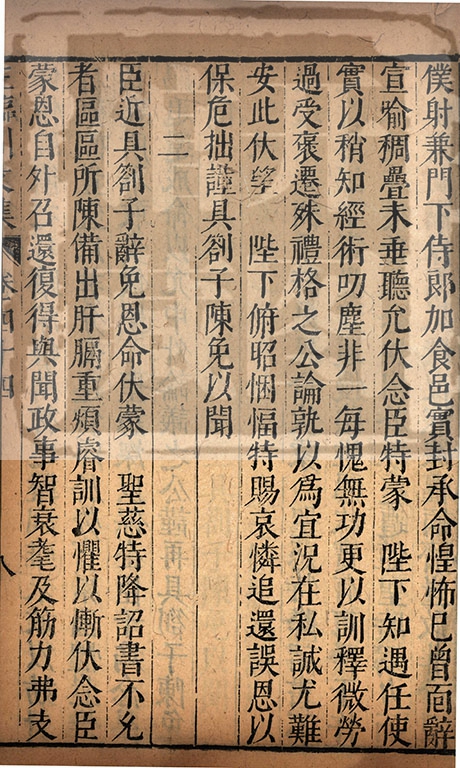 僕射兼門下侍郎加食邑實封承命惶怖已曾面辭
宣喻稠疊未垂聽允伏念臣特蒙 陛下知遇任使
實以稍知經術叨塵非一每愧無功更以訓釋微勞
過受褒遷殊禮格之公論孰以爲宜況在私誠尤難
安此伏望 陛下俯昭悃愊特賜哀憐追還誤恩以
保危拙謹具劄子陳免以聞
二
臣近具劄子辭免恩命伏蒙 聖慈特降詔書不允
者區區所陳備出肝膈重煩睿訓以懼以慚伏念臣
蒙恩自外召還復得與聞政事智衰耄及筋力弗支
臨川文集 卷四十四 八